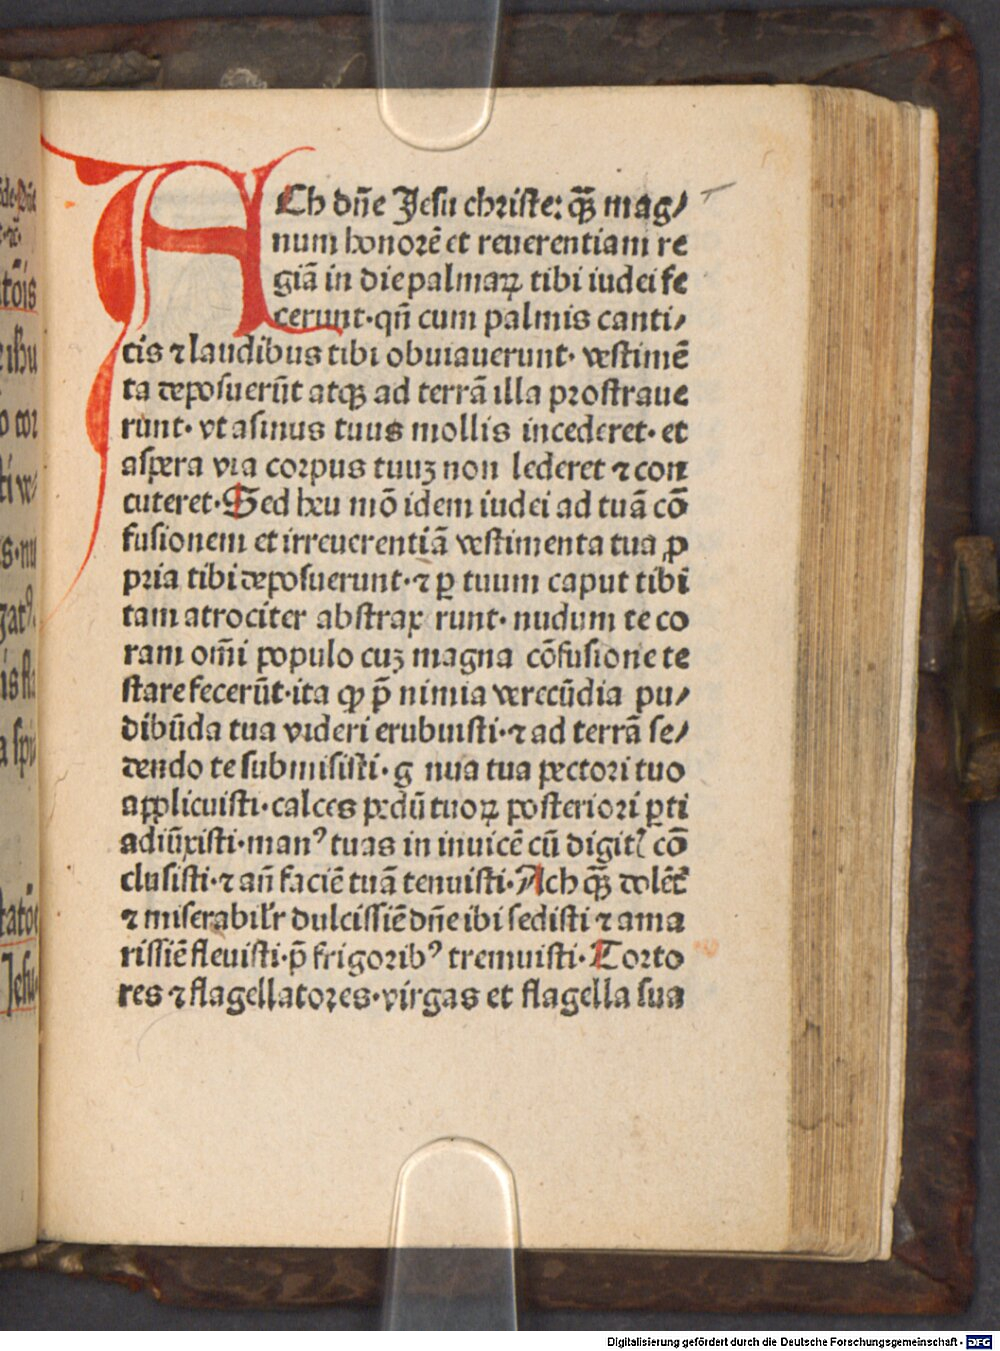 ACh dn̄e Jesu christe: qꝫ̄ mag/
num honorē et reuerentiam re
giā in die palmaꝝ tibi iudei fe
cerunt·qn̄ cum palmis canti/
cis ⁊ laudibus tibi obuiauerunt· vestimē
ta deposuerūt atqꝫ ad terrā illa prostraue
runt· vt asinus tuus mollis incederet· et
aspera via corpus tuuꝫ non lederet ⁊ con
cuteret·Sed heu mō idem iudei ad tuā cō
fusionem et irreuerentiā vestimenta tua ꝓ
pria tibi deposuerunt·⁊ ꝑ tuum caput tibi
tam atrociter abstrax runt· nudum te co
ram om̄i populo cuꝫ magna cōfusione te
stare fecerūt·ita ꝙ p̄ nimia verecūdia pu/
dibūda tua videri erubuisti·⁊ ad terrā se/
dendo te submisisti·g nua tua pectori tuo
applicuisti·calces pedū tuoꝝ posteriori ꝑti
adiūxisti·manꝰ tuas in inuicē cū digitꝭ cō
clusisti·⁊ an̄ faciē tuā tenuisti·Ach qꝫ̄ dolēt̄
⁊ miserabil'r dulcissiē dn̄e ibi sedisti ⁊ ama
rissiē fleuisti·p̄ frigoribꝰ tremuisti·Torto
res ⁊ flagellatores·virgas et flagella sua
Digitalisierung gefördert durch die Deutsche Forschungsgemeinschaft - DFG